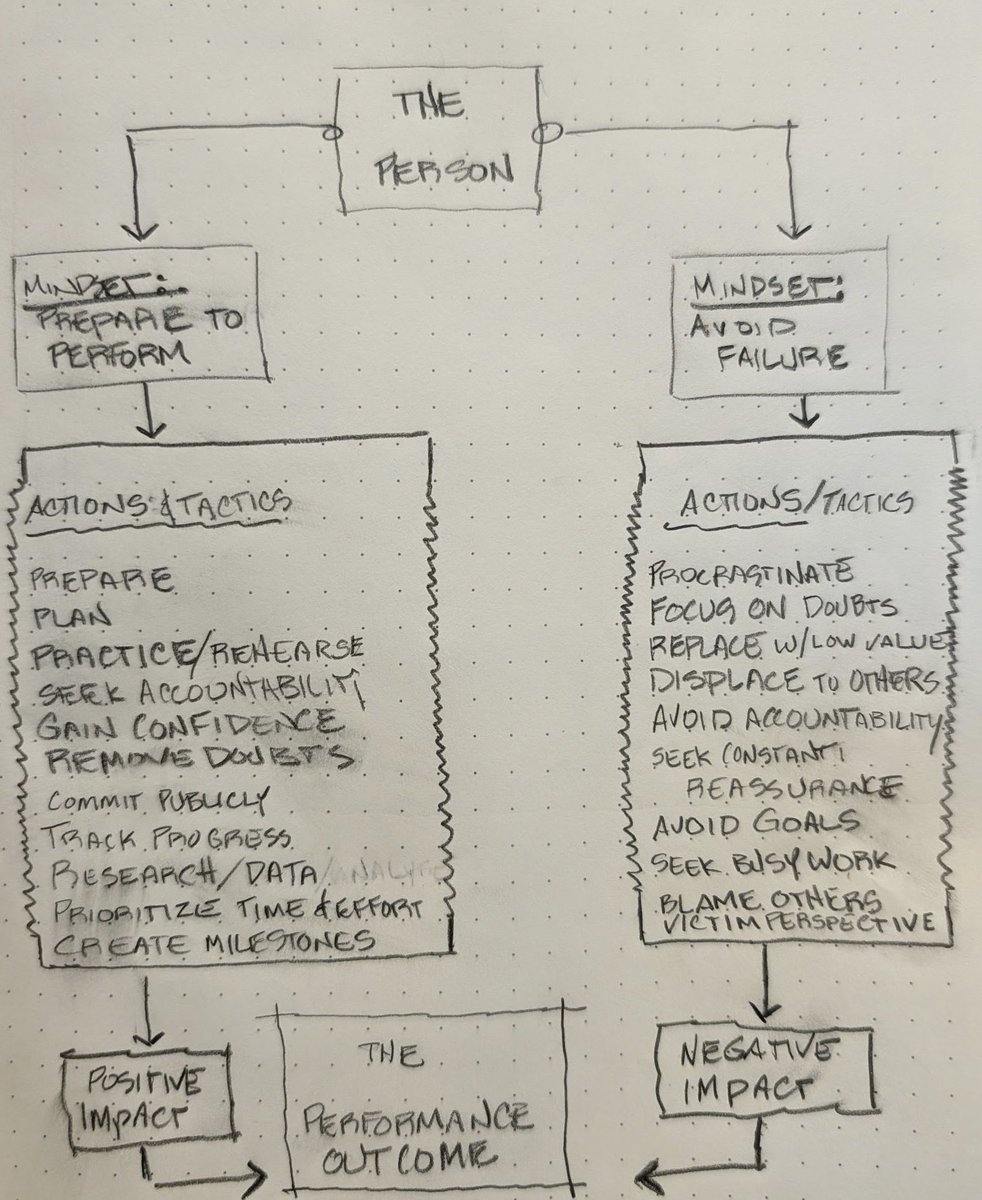 THE
PERSON
MINDSET:
PREPARE TO
PERFORM
MINDSET:
AVOID
FAILURE
ACTIONS & TACTICS
PREPARE
PLAN
PRACTICE/REHEARSE
SEEK ACCOUNTABILITY
GAIN CONFIDENCE
REMOVE DOUBTS
COMMIT PUBLICLY
TRACK PROGRESS
RESEARCH/DATA
PRIORITIZE TIME & EFFORT
CREATE MILESTONES
ACTIONS/TACTICS
PROCRASTINATE
FOCUS ON DOUBTS
REPLACE W/LOW VALUE
DISPLACE TO OTHERS
AVOID ACCOUNTABILITY
SEEK CONSTANT
REASSURANCE
AVOID GOALS
SEEK BUSY WORK
BLAME OTHERS
VICTIM PERSPECTIVE
POSITIVE
IMPACT
THE
PERFORMANCE
OUTCOME
NEGATIVE
IMPACT